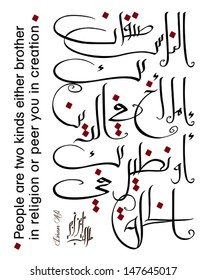 الناس صنفان
إما أخ لك في الدين
أو نظير لك في
الخلق
People are two kinds either brother
in religion or peer you in creation
Emam Ali
147645017